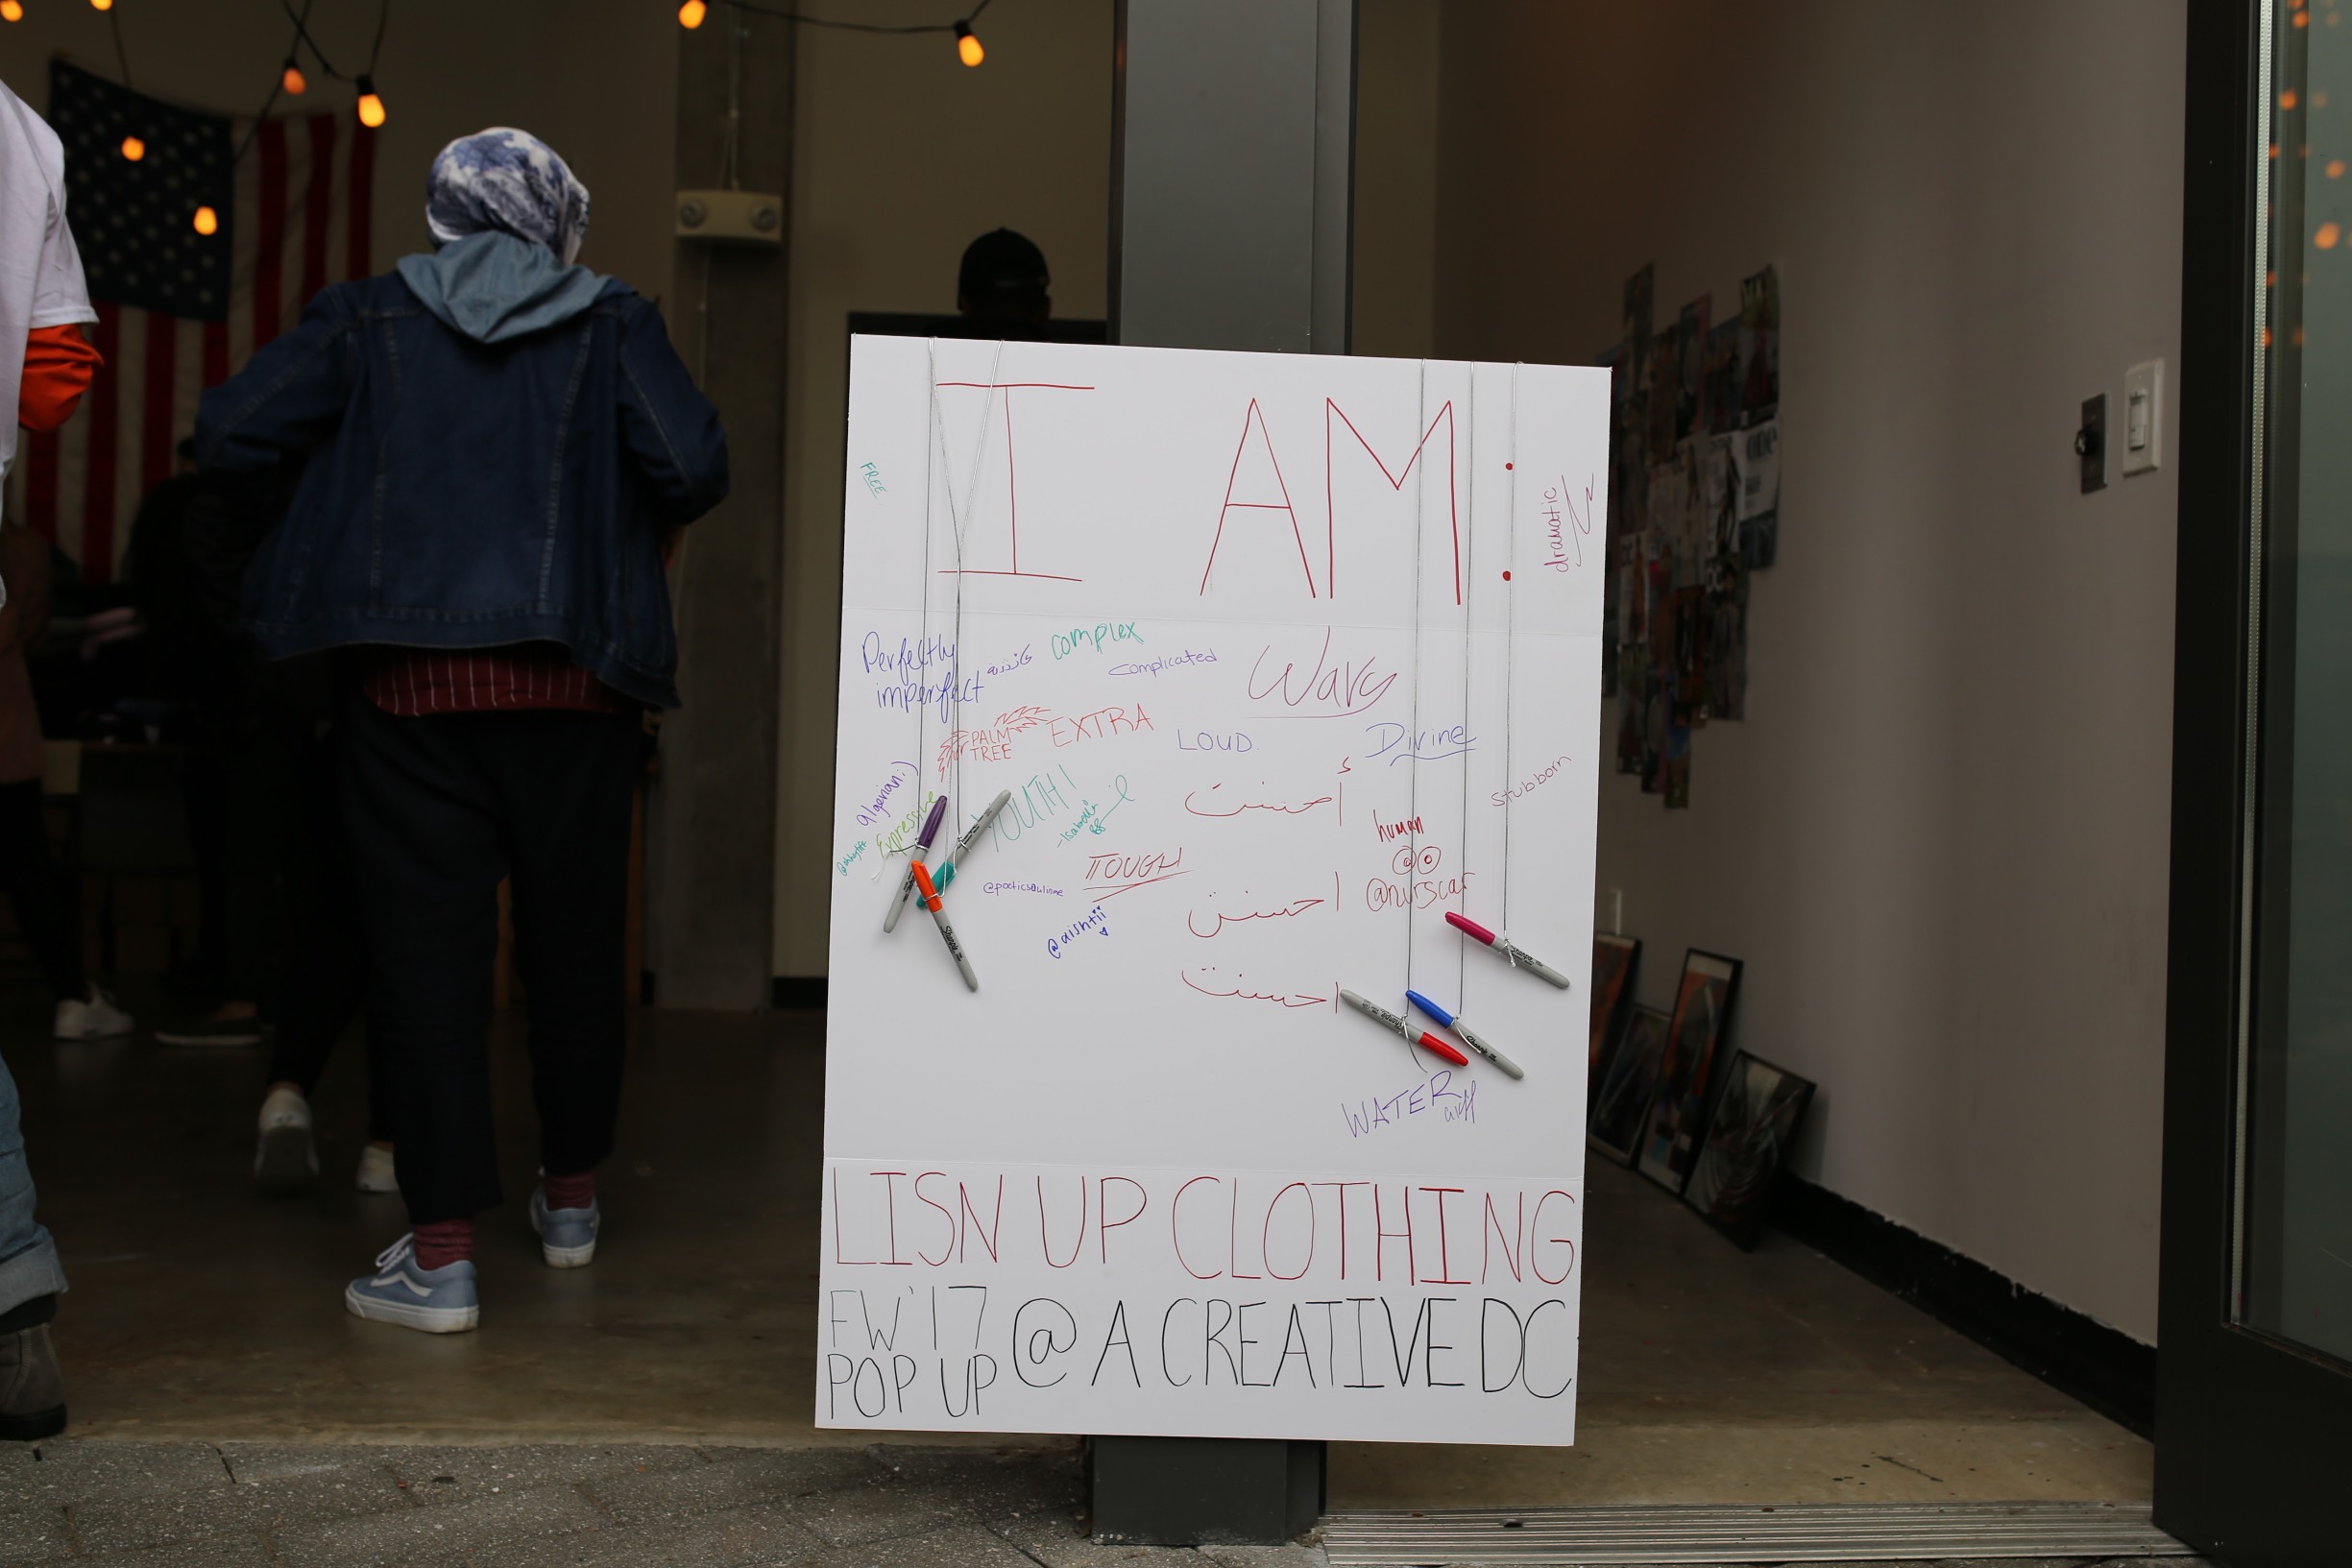 I AM:
FREE
dramatic
Perfectly
imperfect
complex
Complicated
Wavy
PALM
TREE
EXTRA
LOUD.
Divine
algerian :)
Expressive
YOUTH!
stubborn
أحسنت
human
@nurscar
TOUGH
@poeticsoulinme
@aishtii
احسنت
احسنت
WATER
LISN UP CLOTHING
FW'17
POP UP
@ A CREATIVE DC